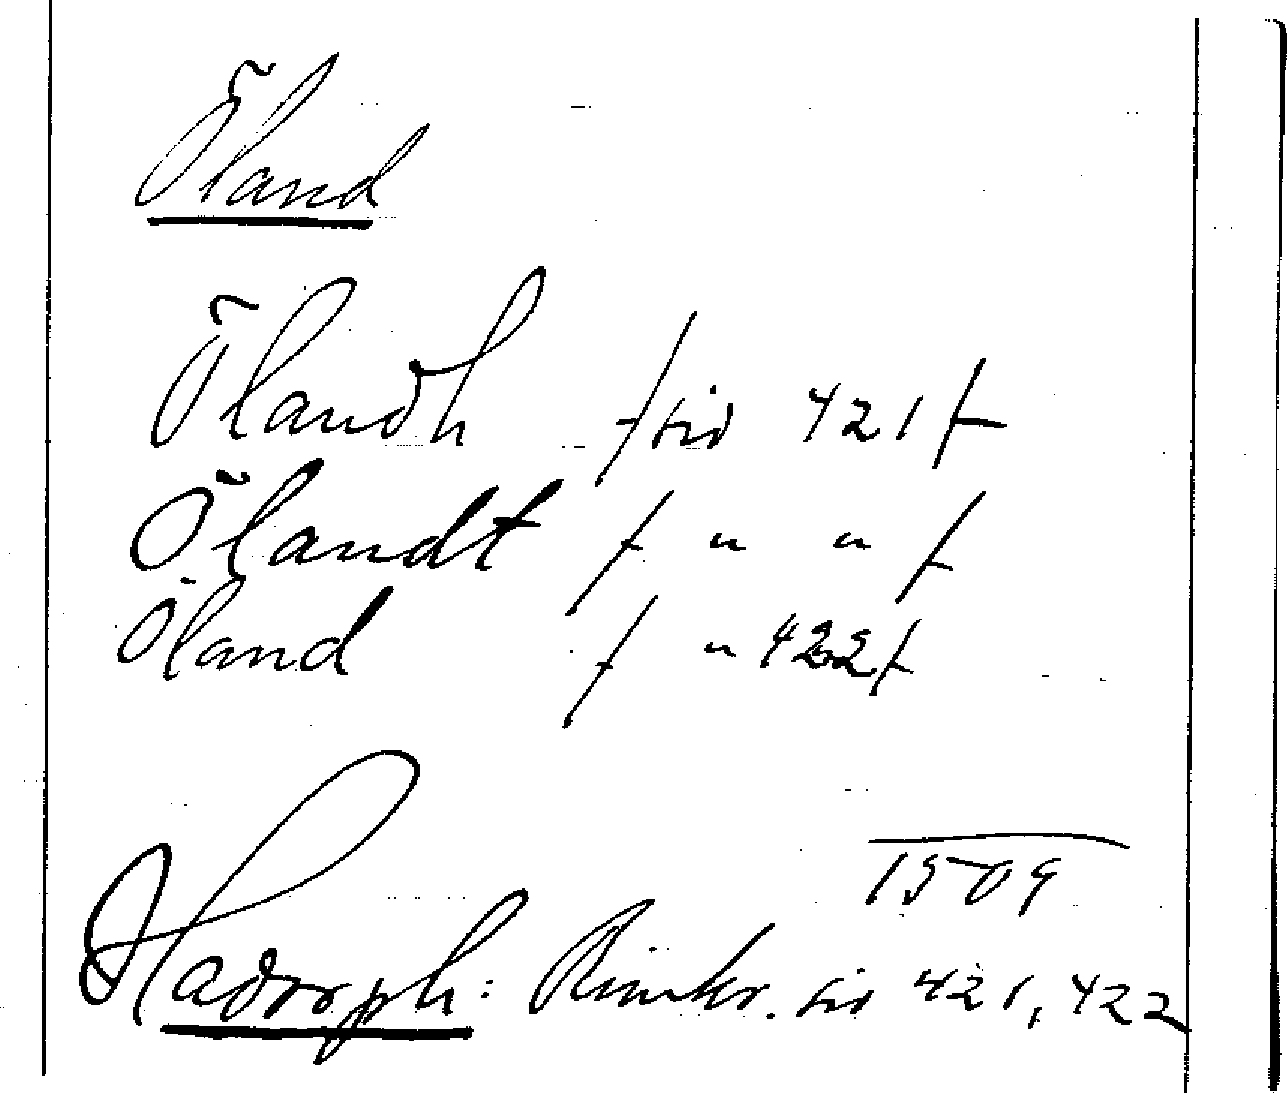 Öland
Ölandh /sid 421/
Ölandt / " " /
Öland / " 422/
1509
Hadorph: Rimkr. sid 421, 422